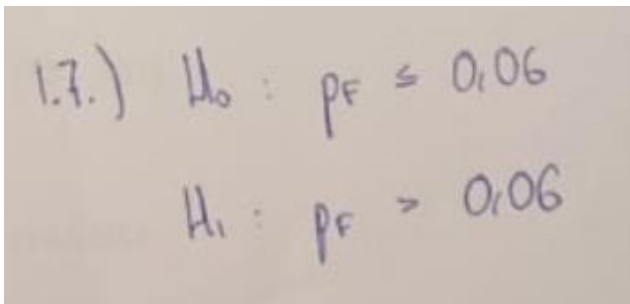 1.7.) H₀ : pF ≤ 0,06
H₁ : pF > 0,06